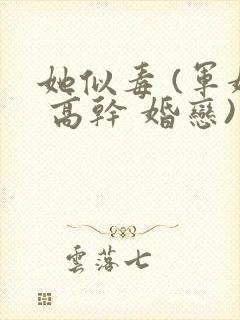 她似毒 (軍
高幹 婚戀)
雲落七